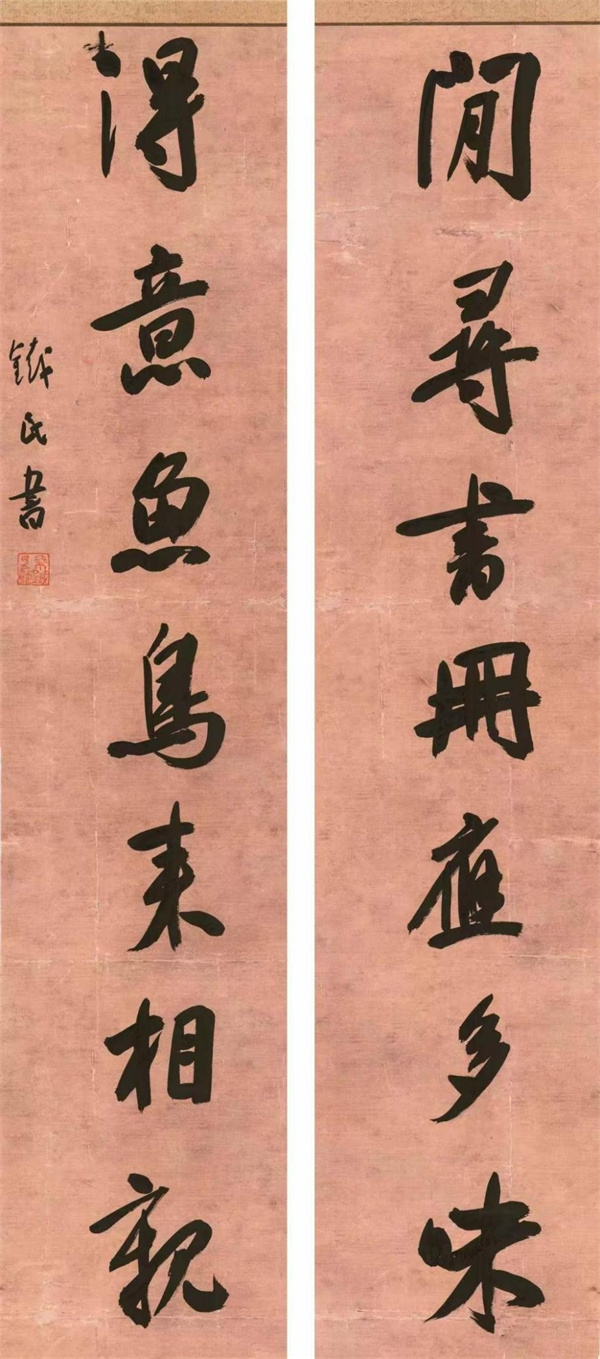 閒尋書冊應多味
得意魚鳥来相親
鐵氏書